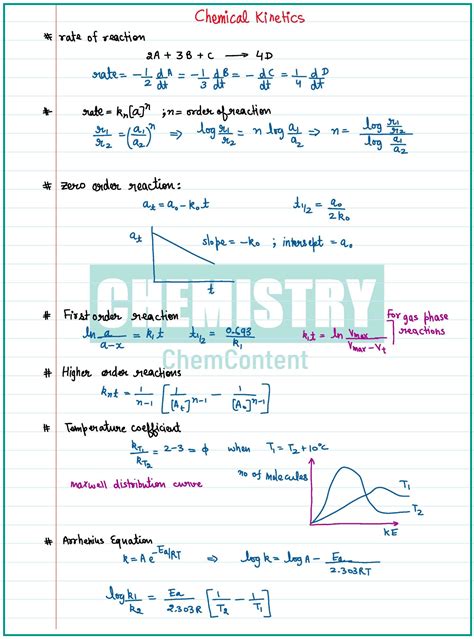 Chemical Kinetics
# rate of reaction
2A + 3B + C → 4D
rate = -1/2 dA/dt = -1/3 dB/dt = -dC/dt = 1/4 dD/dt
# rate = kₙ[a]ⁿ ; n = order of reaction
r₁/r₂ = (a₁/a₂)ⁿ ⇒ log r₁/r₂ = n log a₁/a₂ ⇒ n = log r₁/r₂ / log a₁/a₂
# zero order reaction:
aₜ = a₀ - k₀t t₁/₂ = a₀/2k₀
aₜ
slope = -k₀ ; intersept = a₀
t
CHEMISTRY
# First order reaction
For gas phase reactions
ln a/a-x = k₁t t₁/₂ = 0.693/k₁ k₁t = ln Vmax/Vmax-Vt
ChemContent
# Higher order reactions
kₙt = 1/n-1 [1/[Aₜ]ⁿ⁻¹ - 1/[A₀]ⁿ⁻¹]
# Temperature coefficient
kT₁/kT₂ = 2-3 = ϕ when T₁ = T₂ + 10°C
maxwell distribution curve
no of molecules
T₁
T₂
KE
# Arrhenius Equation
k = A e^-Ea/RT ⇒ log k = log A - Ea/2.303RT
log k₁/k₂ = Ea/2.303R [1/T₂ - 1/T₁]